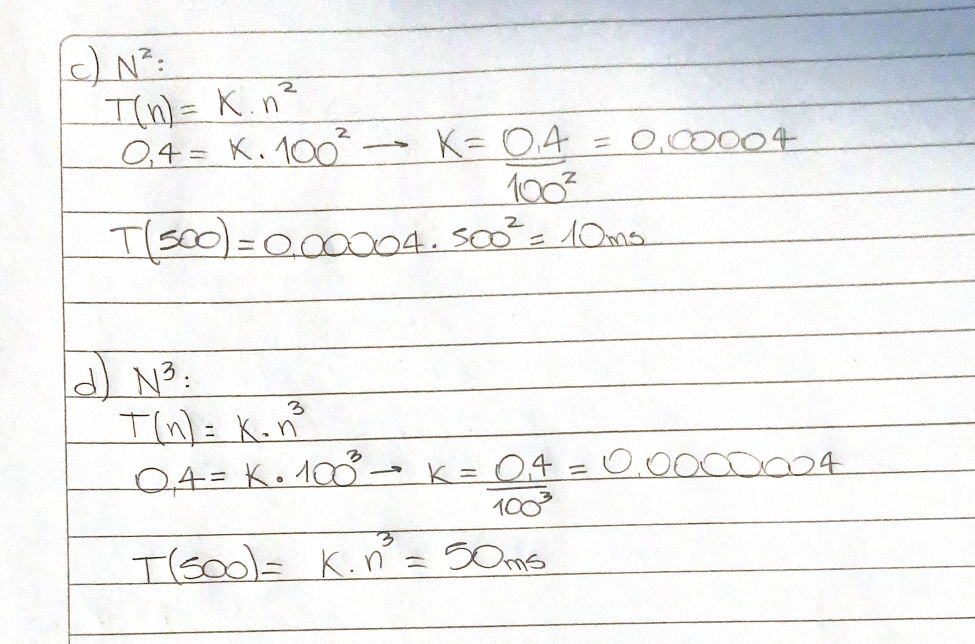 c) N²:
T(n) = K . n²
0,4 = K . 100² → K = 0,4 / 100² = 0,00004
T(500) = 0,00004 . 500² = 10ms
d) N³:
T(n) = K . n³
0,4 = K . 100³ → K = 0,4 / 100³ = 0,0000004
T(500) = K . n³ = 50ms